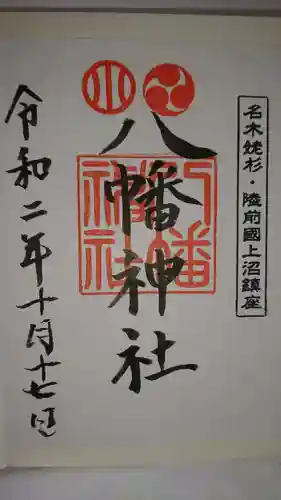 名木姥杉・陸前國上沼鎮座
八幡神社
八幡神社
令和二年十月十七日